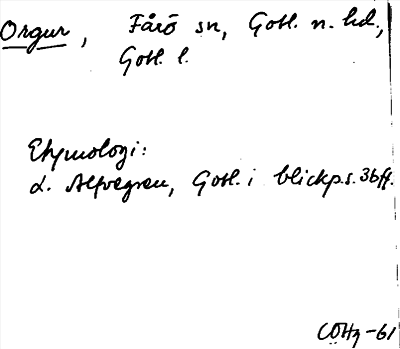 Orgur, Fårö sn, Gotl. n. hd.,
Gotl. l.
Etymologi:
L. Alfvegren, Gotl. i blickp. s. 36 ff.
CÖHg -61